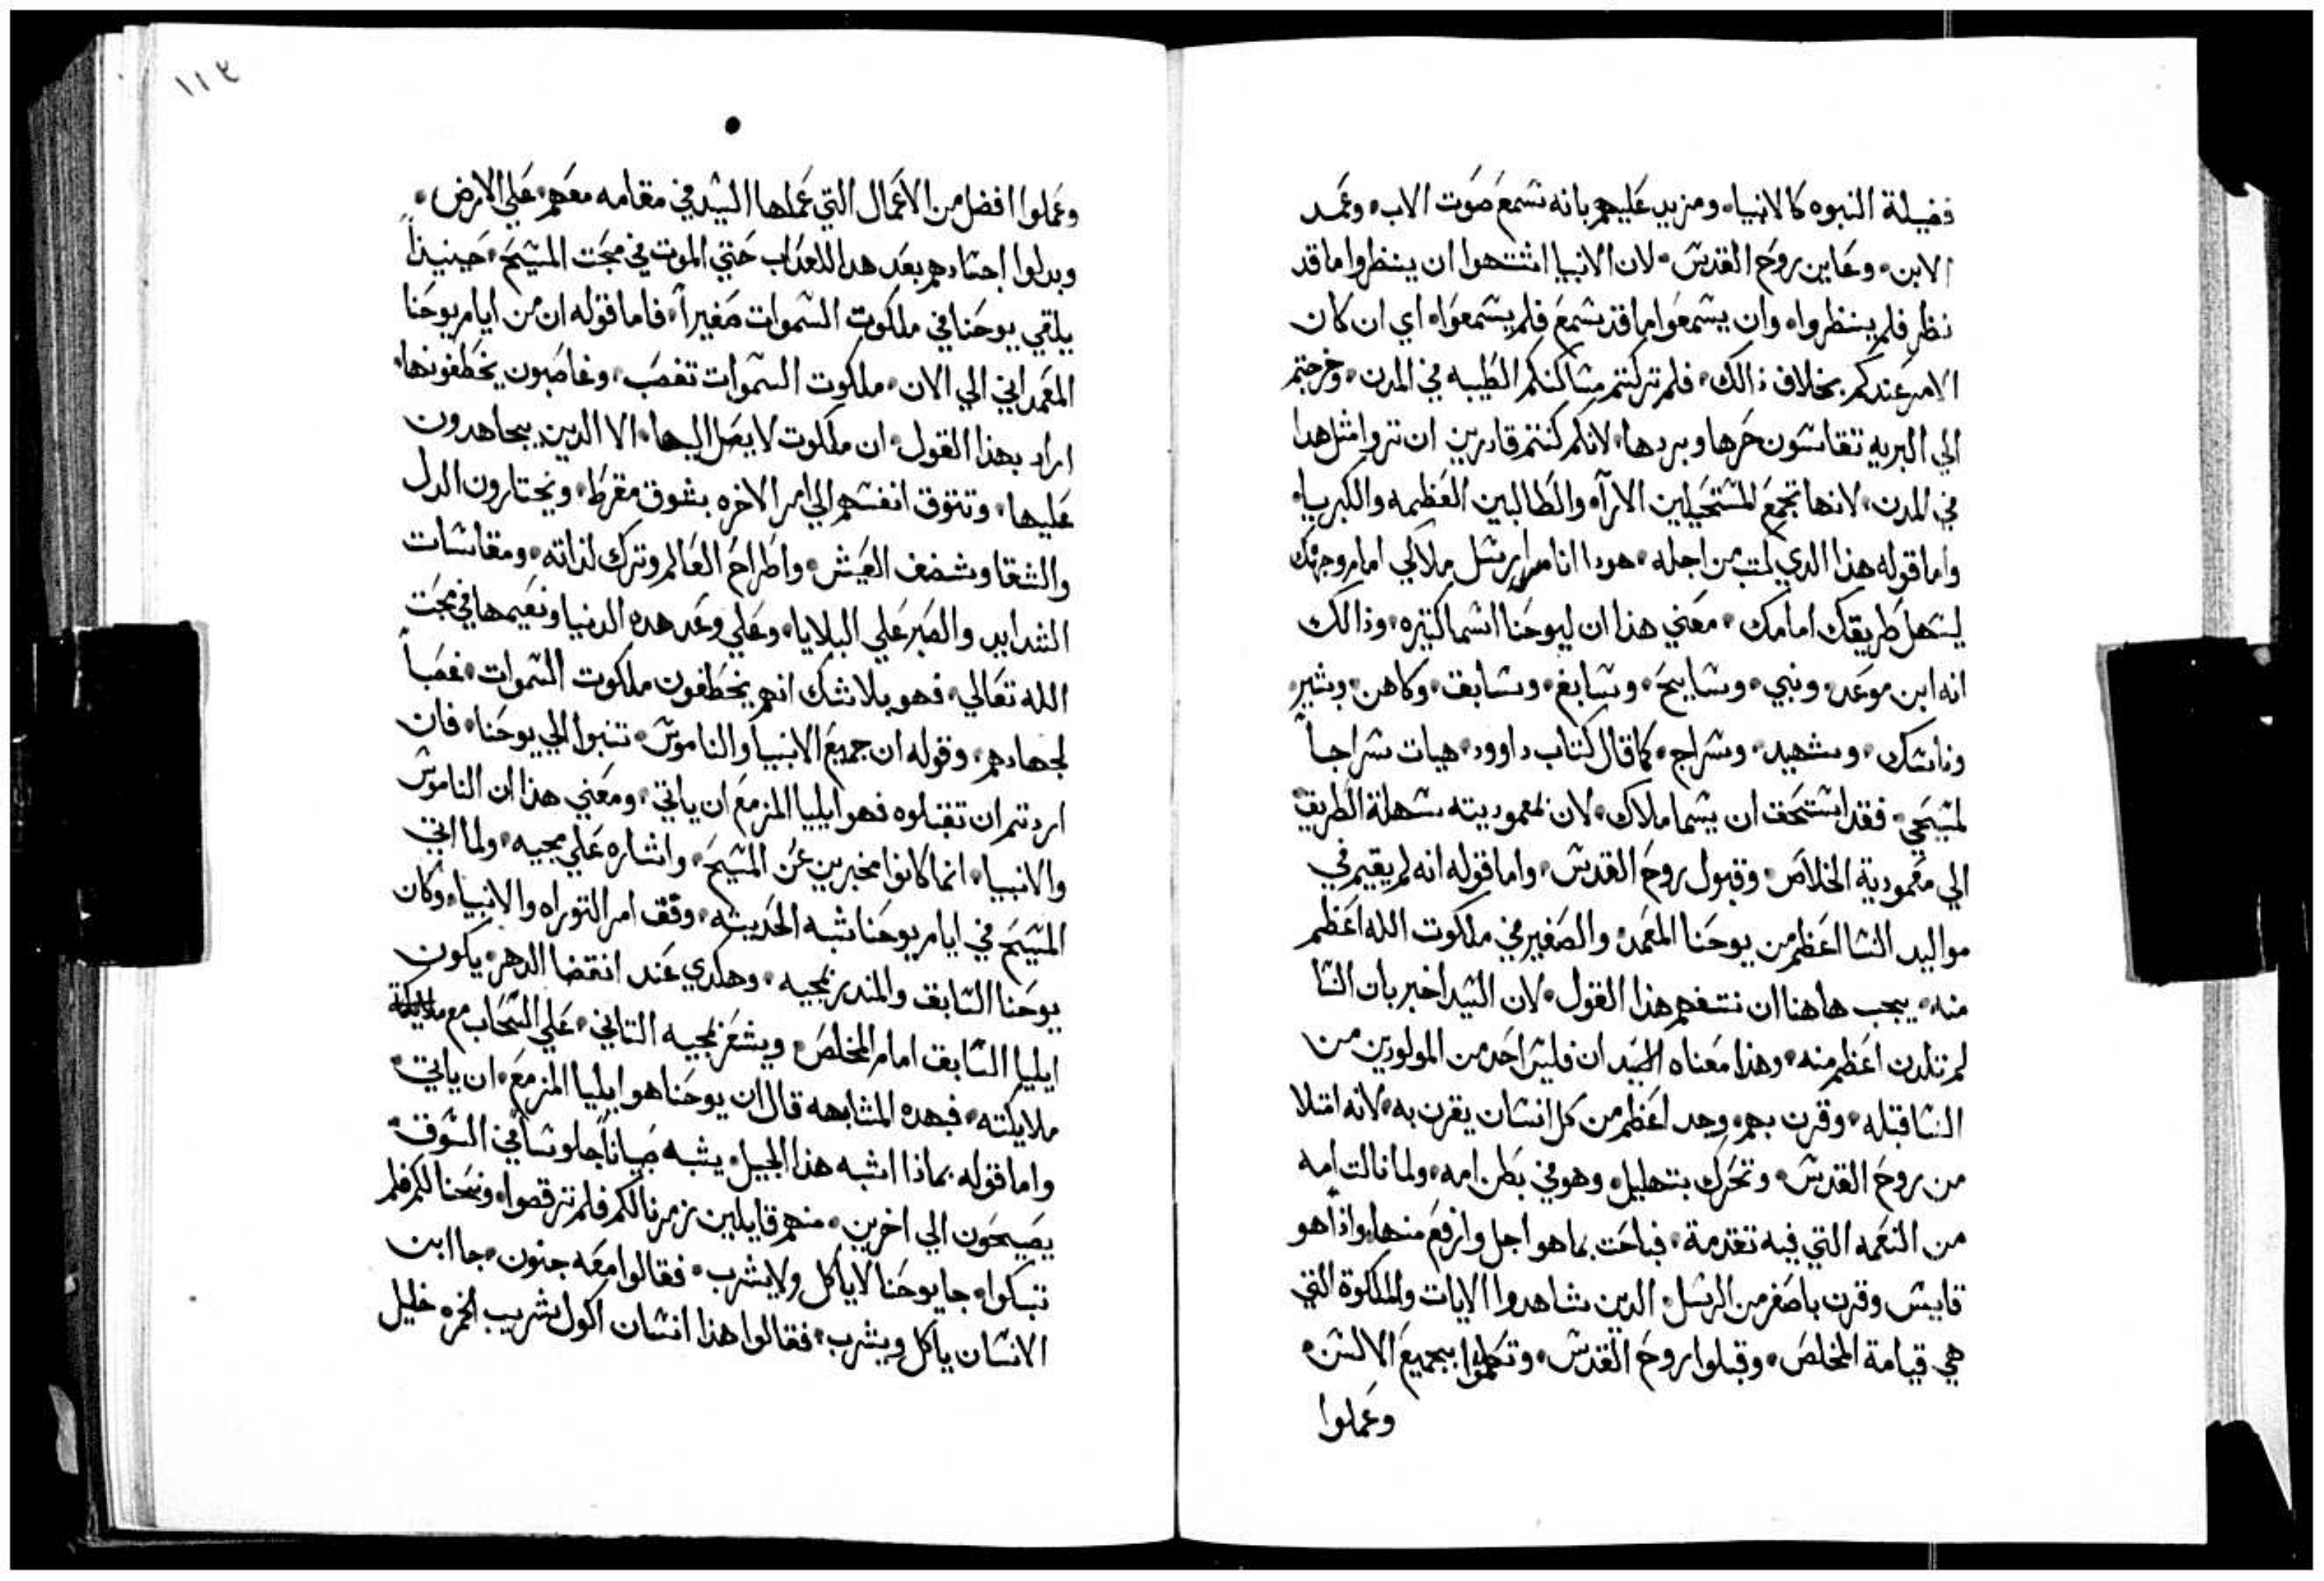 فضيلة النبوه كالانبياء ومزيد عليهم بانه تسمع صوت الاب وعمد
الابن وعاين روح القدس لان الانبيا اشتهوا ان ينظروا ما قد
نظر فلم ينظرواه وان يسمعوا ما قد سمع فلم يسمعواه اي ان كان
الامر عندكم بخلاف ذالك فلم تركتم مساكنكم الطيبه في المدن وخرجتم
الي البريه تقاسون حرها وبردها لانكم كنتم قادرين ان تروا مثل هدا
في المدن لانها تجمع المستحيلين الاراء والطالبين العظمه والكبريا
واما قوله هذا الدي كتب من اجله هودا انا مرسل ملاكي امام وجهك
ليسهل طريقك امامك معني هذا ان ليوحنا اسما كتيره وذالك
انه ابن موعد ونبي وسايح وسابغ وسابق وكاهن وبشير
وناسك وشهيد وسراج كما قال كتاب داوود هيات سراجاً
لمسيحي فقد استحق ان يسما ملاك لان لمعموديته سهلة الطريق
الي معمودية الخلاص وقبول روح القدس واما قوله انه لم يقيم في
مواليد النسا اعظم من يوحنا المعمد والصغير في ملكوت الله اعظم
منه يجب هاهنا ان نتفهم هذا القول لان السيد اخبر بان النسا
لم تلدن اعظم منه وهذا معناه السيد ان فليس احد من المولودين من
النسا قبله وقرن بهم وجد اعظم من كل انسان يقرن به لانه امتلا
من روح القدس وتحرك بتهليل وهو في بطن امه ولما نالت امه
من النعمه التي فيه تقدمة فباحت بما هو اجل وارفع منها واذا هو
قايس وقرن باصغر من الرسل الدين شاهدوا الايات والملكوة التي
هي قيامة المخلص وقبلوا روح القدس وتكلموا بجميع الالسن
وعملوا
١١٣
وعملوا افضل من الاعمال التي عملها السيد في مقامه معهم علي الارض
وبدلوا اجسادهم بعد هدا للعداب حتي الموت في محبت المسيح حينيذاً
يلقي يوحنا في ملكوت السموات صغيراً فاما قوله ان من ايام يوحنا
المعمداني الي الان ملكوت السموات تغصب وغاصبون يخطفونها
اراد بهذا القول ان ملكوت لا يصل اليها الا الدين يجاهدون
عليها وتتوق انفسهم الي امر الاخره بشوق مفرط ويختارون الدل
والشقا وشضف العيش واطراح العالم وترك لذاته ومقاسات
الشدايد والصبر علي البلايا وعلي وعد هده الدنيا ونعيمها في محبت
الله تعالي فهو بلا شك انهم يخطفون ملكوت السموات غصباً
لجهادهم وقوله ان جميع الانبيا والناموس تنبوا الي يوحنا فان
اردتم ان تقبلوه فهو ايليا المزمع ان ياتي ومعني هذا ان الناموس
والانبيا انما كانوا مخبرين عن المسيح واشاره علي مجيه ولما اتي
المسيح في ايام يوحنا شبه الحديثه وقف امر التوراه والانبيا وكان
يوحنا السابق والمندر بمجيه وهكدي عند انقضا الدهر يكون
ايليا السابق امام المخلص ويشعر بمجيه التاني علي السحاب مع
ملايكته فبهده المشابهه قال ان يوحنا هو ايليا المزمع ان ياتي
واما قوله بماذا اشبه هذا الجيل يشبه صبياناً جلوساً في السوق
يصيحون الي اخرين منهم قايلين زمرنا لكم فلم ترقصوا ونحنا لكم فلم
تبكوا جا يوحنا لا ياكل ولا يشرب فقالوا معه جنون جا ابن
الانسان ياكل ويشرب فقالوا هذا انسان اكول شريب الخمره خليل